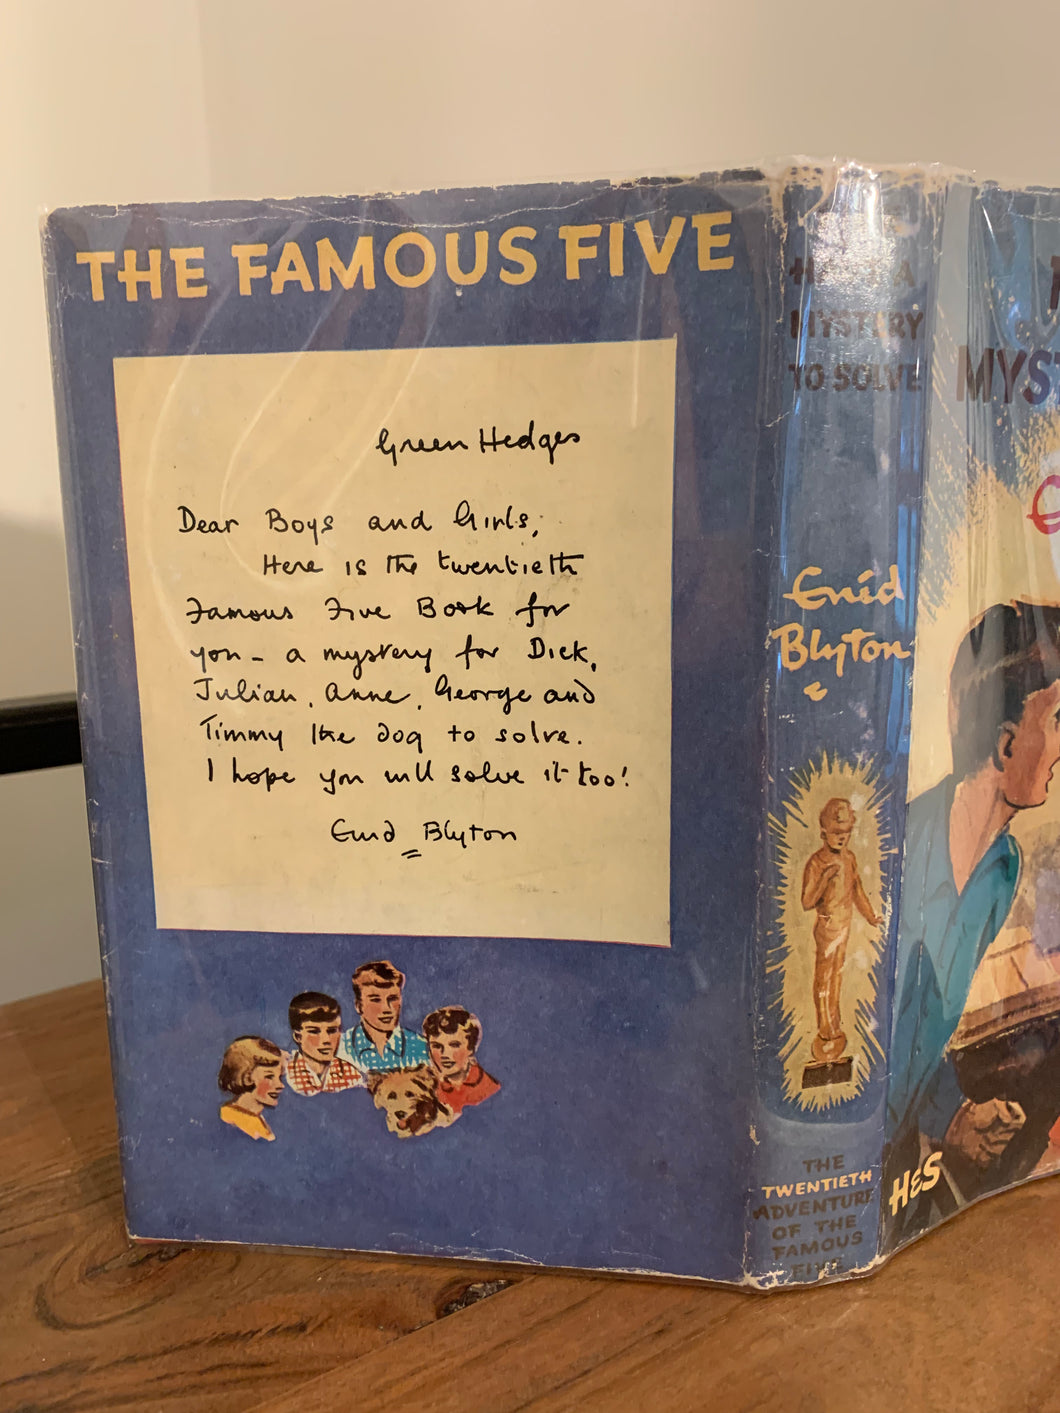 THE FAMOUS FIVE
Green Hedges
Dear Boys and Girls,
Here is the twentieth
Famous Five Book for
you - a mystery for Dick,
Julian, Anne, George and
Timmy the dog to solve.
I hope you will solve it too!
Enid Blyton
A
MYSTERY
TO SOLVE
Enid
Blyton
THE
TWENTIETH
ADVENTURE
OF THE
FAMOUS
FIVE
MYST
HES